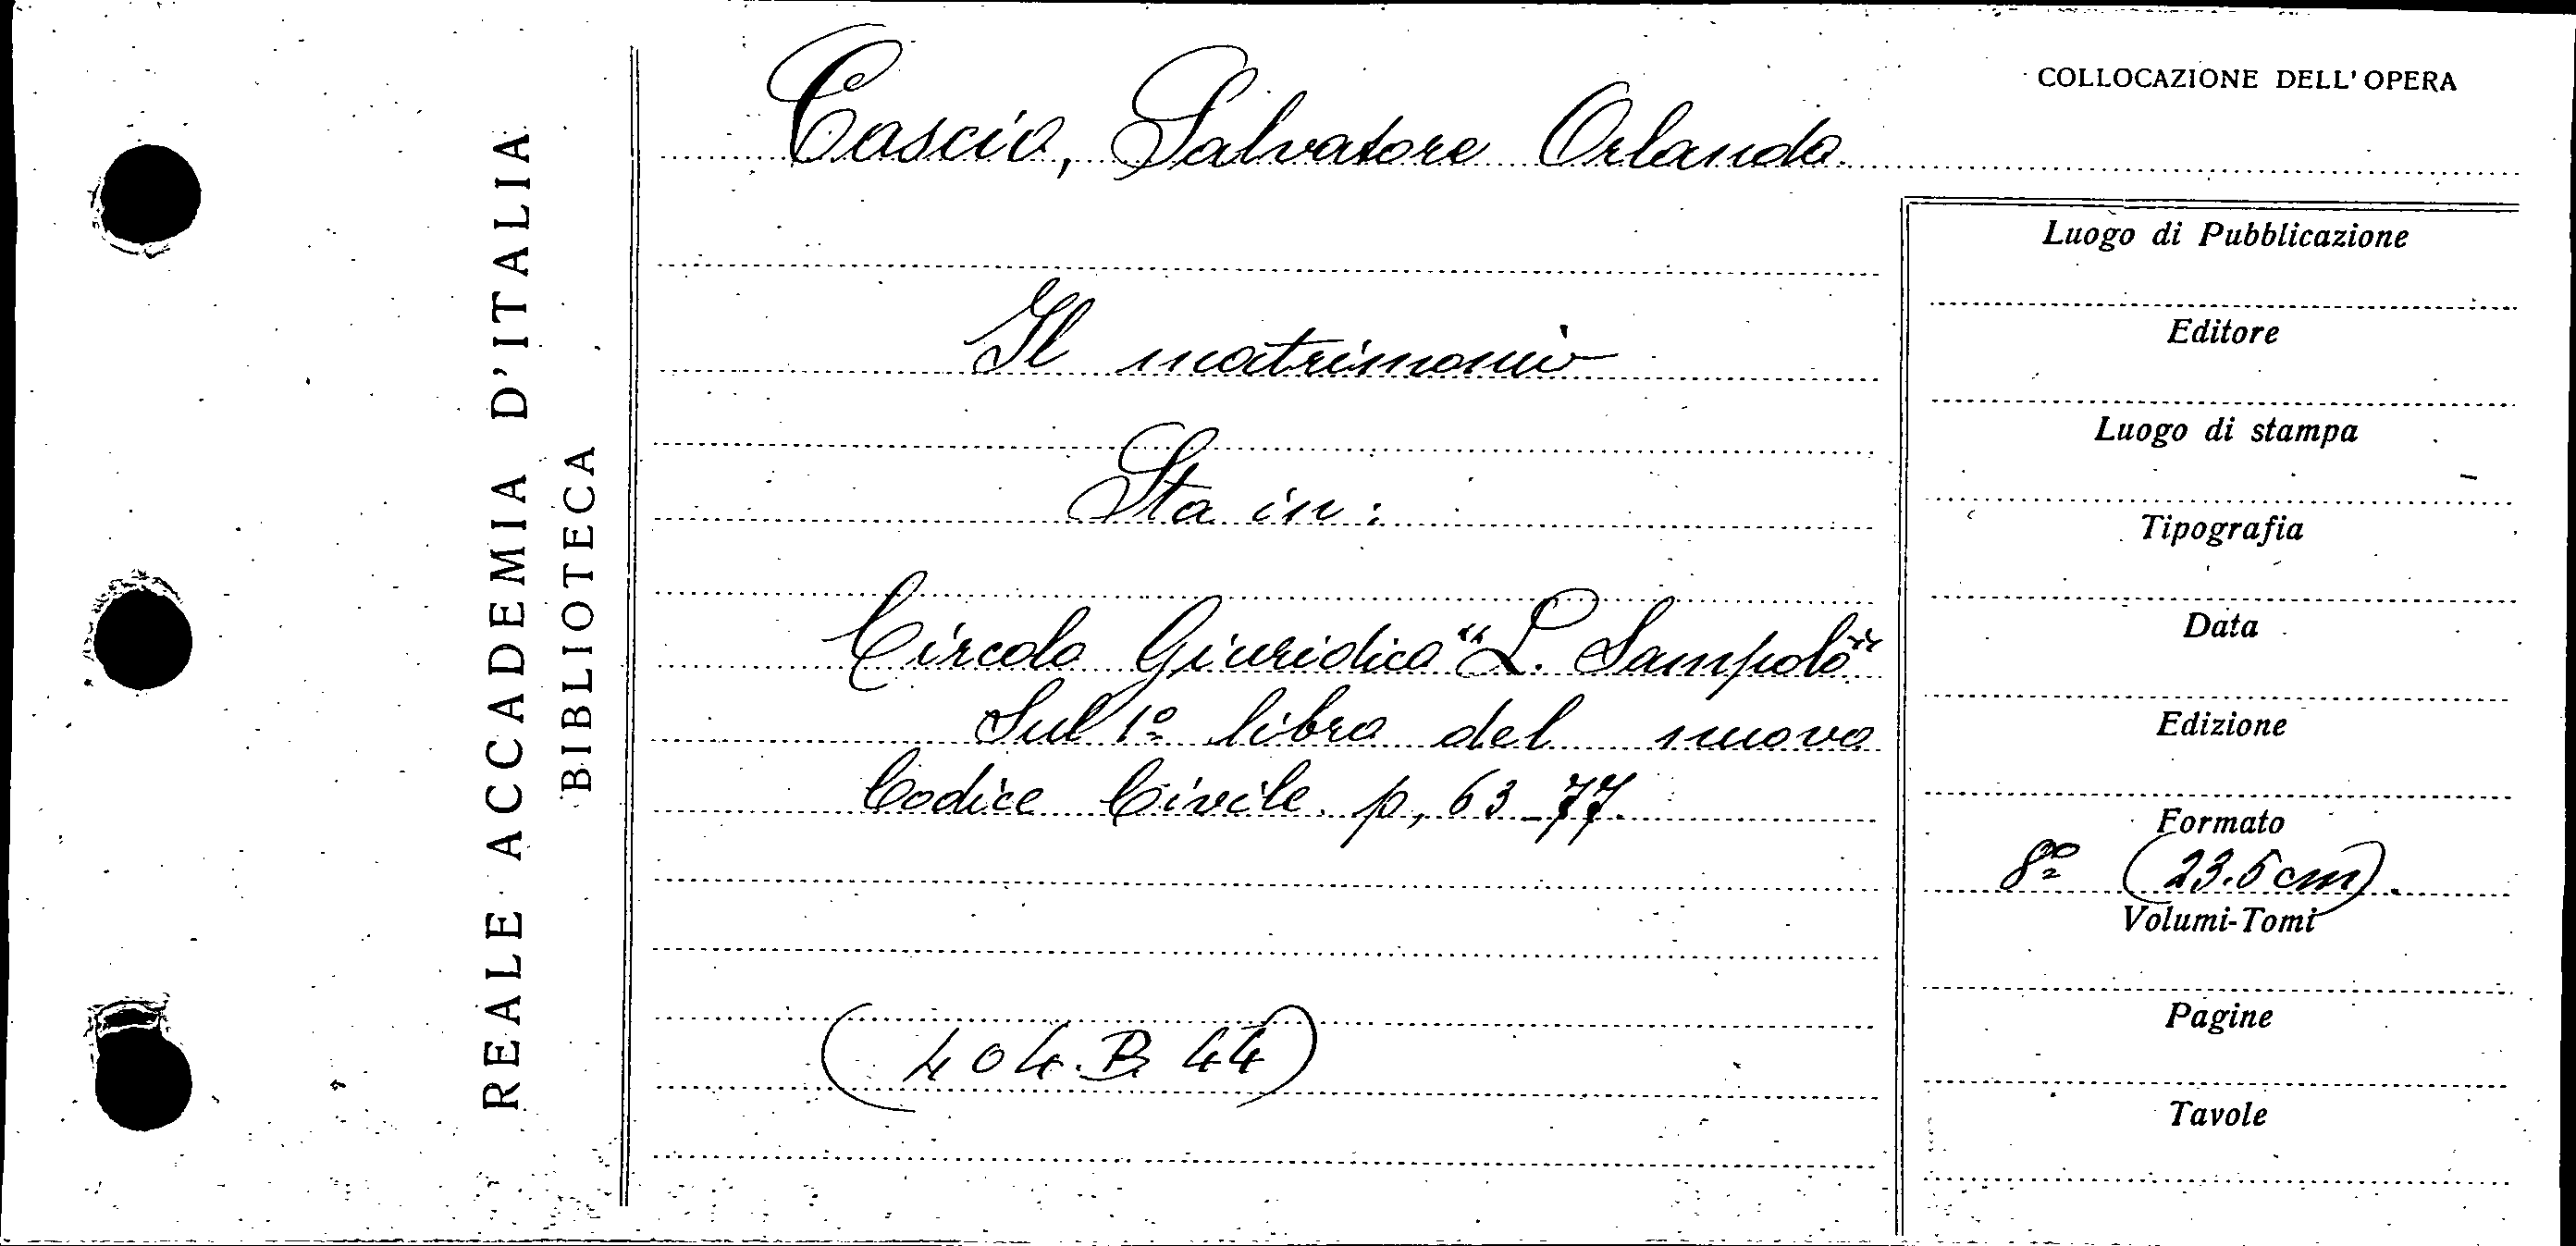 REALE ACCADEMIA D'ITALIA
BIBLIOTECA
Cascio, Salvatore Orlando
COLLOCAZIONE DELL'OPERA
Il matrimonio
Sta in:
Circolo Giuridico "L. Sampolo"
Sul 1º libro del nuovo
Codice Civile. p, 63-77.
(404.B. 44)
Luogo di Pubblicazione
Editore
Luogo di stampa
Tipografia
Data
Edizione
Formato
8º (23.5 cm).
Volumi-Tomi
Pagine
Tavole